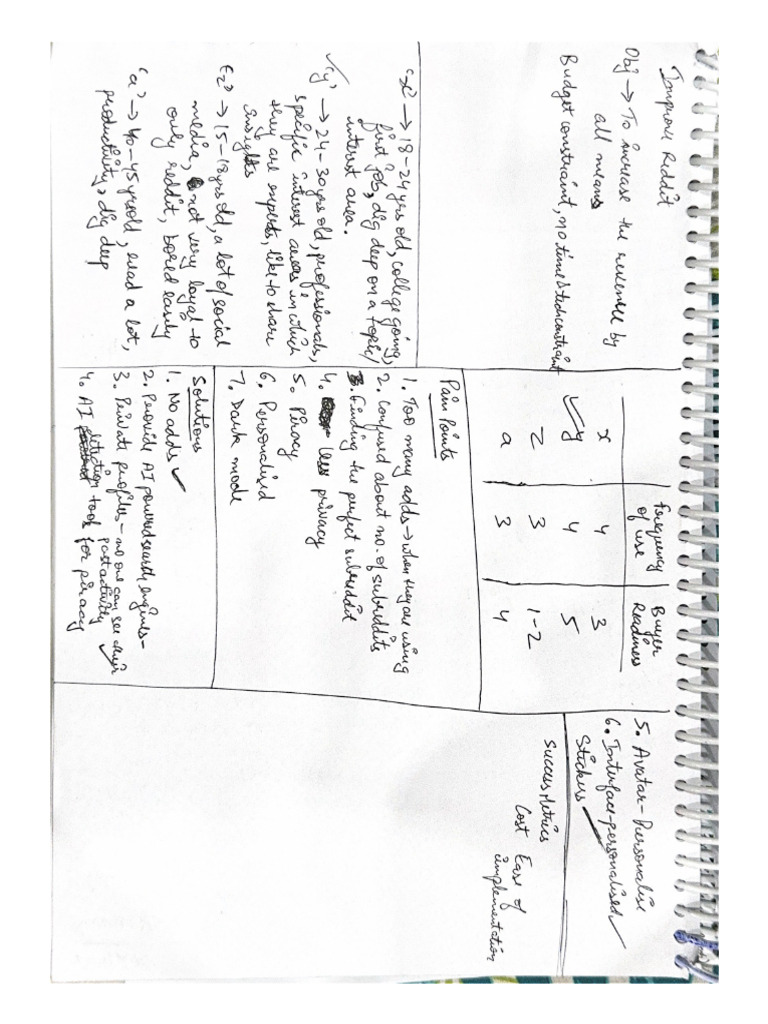 Improve Reddit
Obj → To increase the revenue by
all means
Budget constraint, no time & tech constraint
'x' → 18-24 yrs old, college going,
first job, dig deep on a topic/
interest area.
✓ 'y' → 24-30 yrs old, professionals,
specific interest areas in which
they are experts, like to share
insights
'z' → 15-18 yrs old, a lot of social
media, not very loyal to
only reddit, bored easily
'a' → 40-45 yrs old, read a lot,
productivity, dig deep
Frequency of use Buyer Readiness
x 4 3
✓ y 4 5
z 3 1-2
a 3 4
Pain Points
1. Too many adds → when they are using
2. Confused about no. of subreddits
3. Finding the perfect subreddit
4. less privacy
5. Piracy
6. Personalised
7. Dark mode
Solutions
1. No adds ✓
2. Provide AI powered search engines-
3. Private profiles - no one can see their
past activity ✓
4. AI detection tools for piracy
5. Avatar-Personalise
6. Interface-personalised ✓
Stickers
Success Metrics
Cost Ease of
implementation